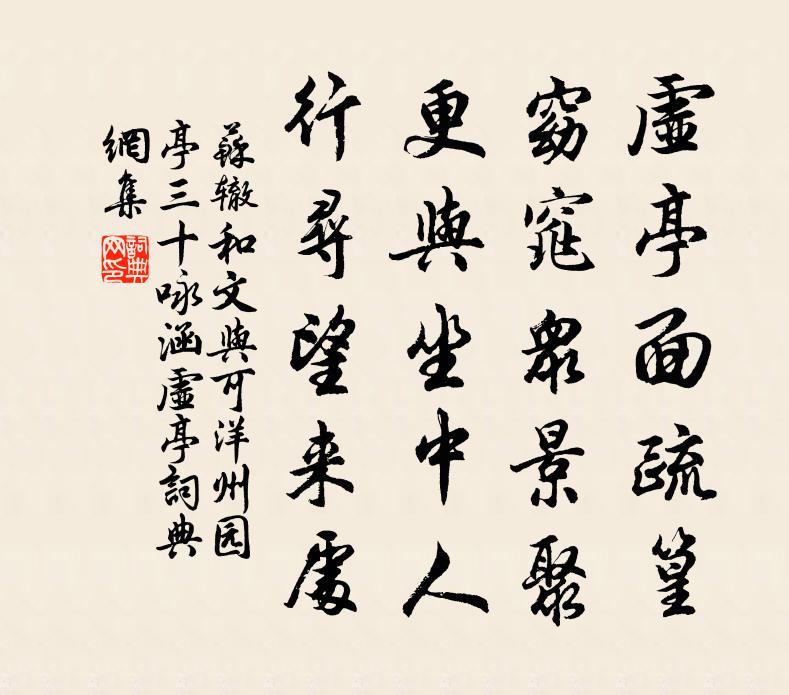 虛亭面疏篁
窈窕衆景聚
更與坐中人
行尋望来處
蘇辙和文與可洋州园
亭三十咏涵虛亭詞典
網集
詞典网印